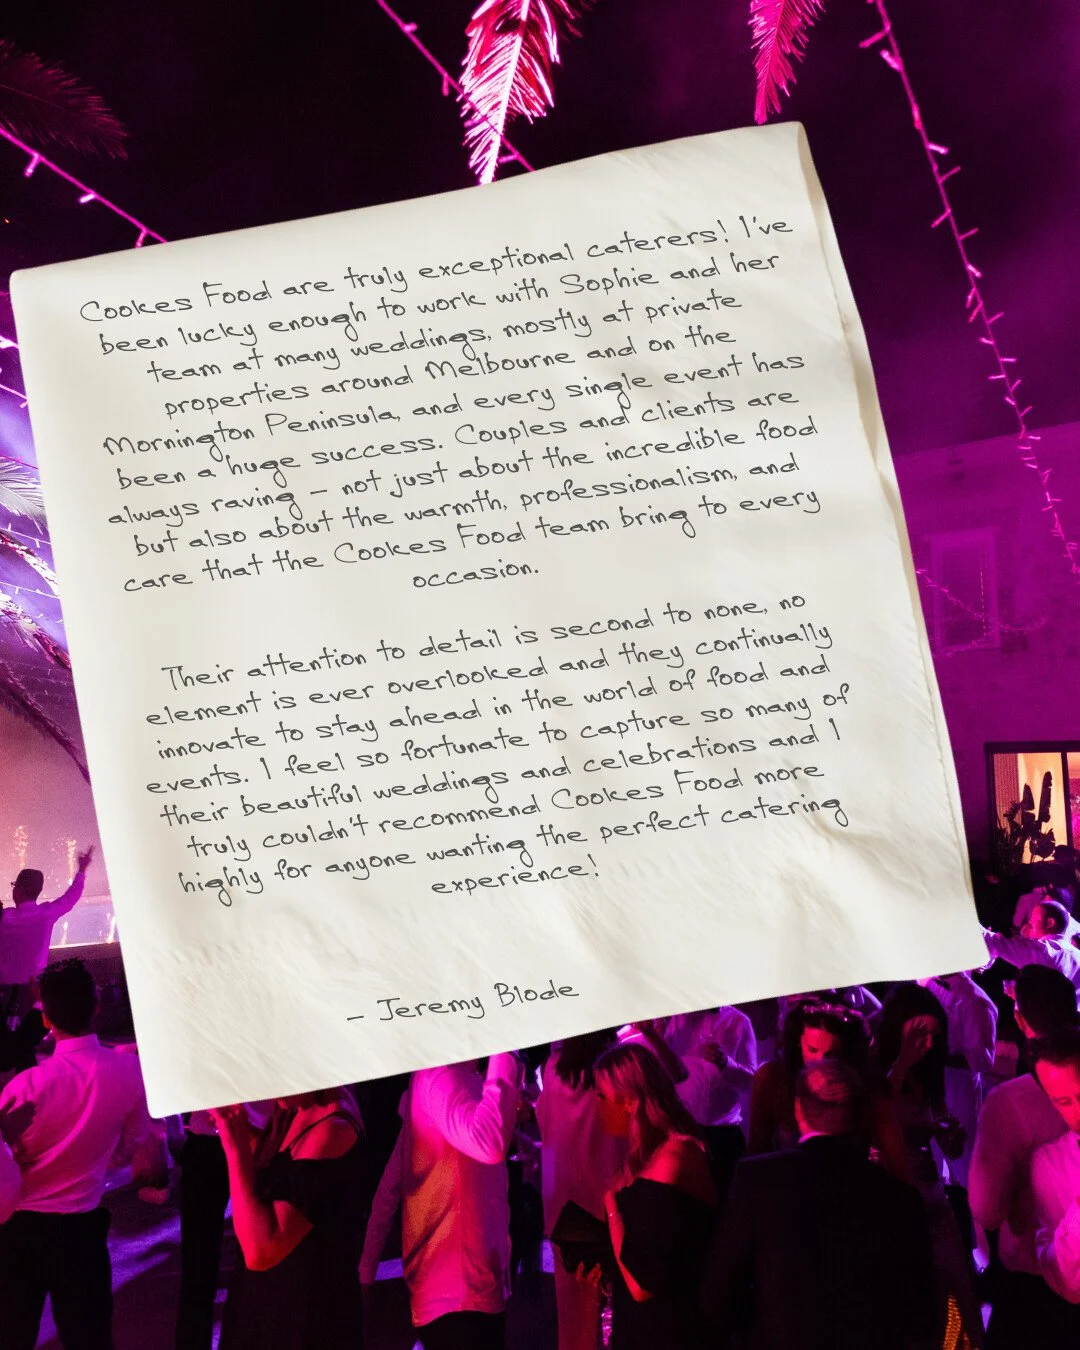 Cookes Food are truly exceptional caterers! I've
been lucky enough to work with Sophie and her
team at many weddings, mostly at private
properties around Melbourne and on the
Mornington Peninsula, and every single event has
been a huge success. Couples and clients are
always raving – not just about the incredible food
but also about the warmth, professionalism, and
care that the Cookes Food team bring to every
occasion.
Their attention to detail is second to none, no
element is ever overlooked and they continually
innovate to stay ahead in the world of food and
events. I feel so fortunate to capture so many of
their beautiful weddings and celebrations and I
truly couldn't recommend Cookes Food more
highly for anyone wanting the perfect catering
experience!
– Jeremy Blode